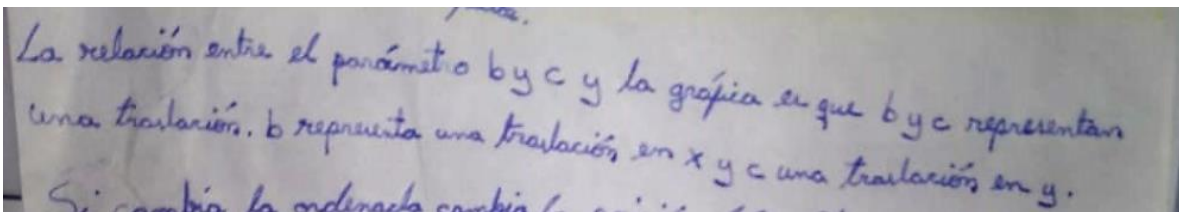 La relación entre el parámetro b y c y la gráfica es que b y c representan
una traslación. b representa una traslación en x y c una traslación en y.
Si cambia la ordenada cambia la